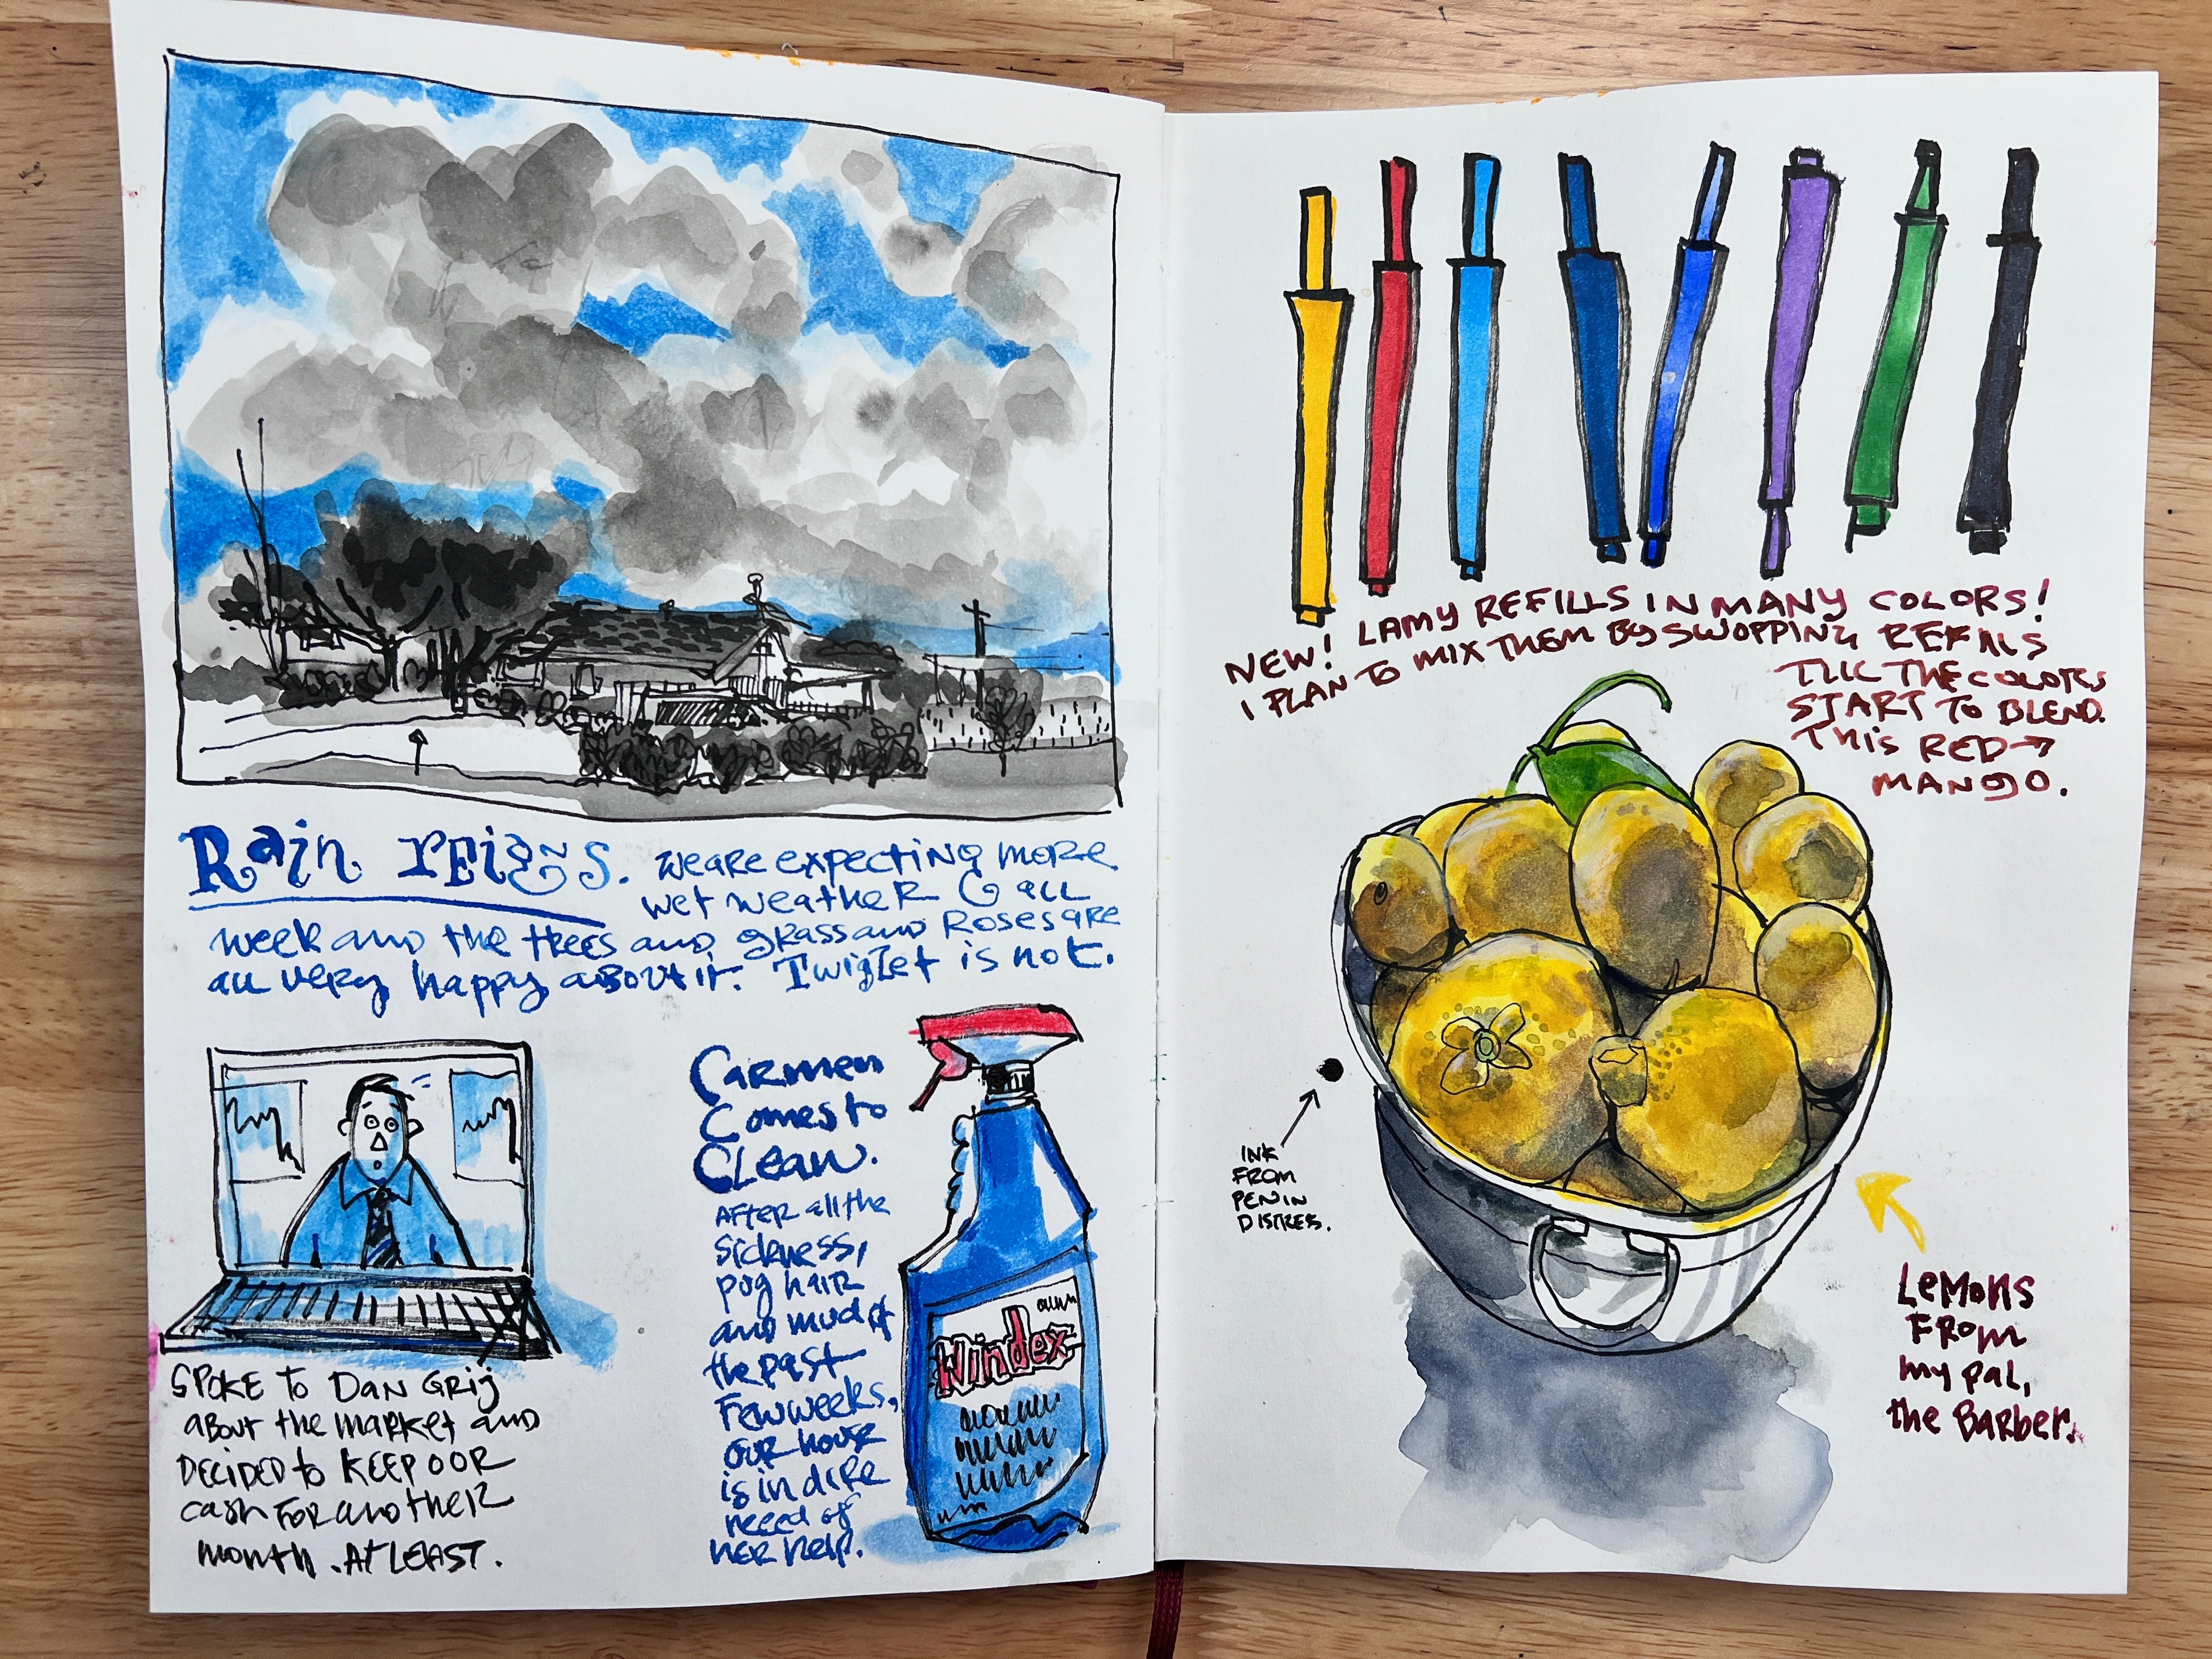 Rain reigns. We are expecting more
wet weather all
week and the trees and grass and Roses are
all very happy about it. Twiglet is not.
SPOKE TO DAN GRIJ
about the market and
DECIDED to KEEP OUR
cash FOR another
month. AT LEAST.
Carmen
Comes to
Clean.
AFTER all the
sickness,
pug hair
and mud of
the past
Few weeks,
our house
is in dire
need of
her help.
Windex
NEW! LAMY REFILLS IN MANY COLORS!
I PLAN TO MIX THEM BY SWOPPING REFILLS
TILL THE COLORS
START TO BLEND.
THIS RED →
MANGO.
INK
FROM
PEN IN
DISTRES.
LEMONS
FROM
my pal,
the Barber.